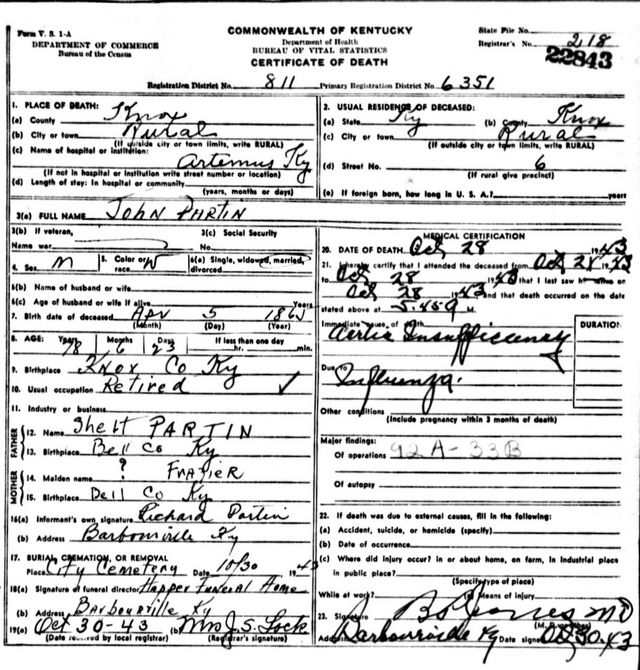 Form V. S. 1-A
DEPARTMENT OF COMMERCE
Bureau of the Census
COMMONWEALTH OF KENTUCKY
Department of Health
BUREAU OF VITAL STATISTICS
CERTIFICATE OF DEATH
State File No.
Registrar's No. 218
22843
Registration District No. 811 Primary Registration District No. 6351
1. PLACE OF DEATH:
(a) County Knox
(b) City or town Rural
(If outside city or town limits, write RURAL)
(c) Name of hospital or institution:
Artemus Ky
(If not in hospital or institution write street number or location)
(d) Length of stay: In hospital or community
(years, months or days)
2. USUAL RESIDENCE OF DECEASED:
(a) State Ky (b) County Knox
(c) City or town Rural
(If outside city or town limits, write RURAL)
(d) Street No. 6
(If rural give precinct)
(e) If foreign born, how long in U. S. A.? years
3(a) FULL NAME John Partin
3(b) If veteran,
Name war
3(c) Social Security
No.
4. Sex M 5. Color or race W 6(a) Single, widowed, married, divorced
6(b) Name of husband or wife
6(c) Age of husband or wife if alive Years
7. Birth date of deceased Apr 5 1865
(Month) (Day) (Year)
8. AGE: Years Months Days If less than one day
78 6 23 hr. min.
9. Birthplace Knox Co Ky
10. Usual occupation Retired
11. Industry or business
FATHER
12. Name Shelt PARTIN
13. Birthplace Bell Co Ky
MOTHER
14. Maiden name ? Frazier
15. Birthplace Bell Co Ky
16(a) Informant's own signature Richard Partin
(b) Address Barbourville Ky
17. BURIAL, CREMATION, OR REMOVAL
Place City Cemetery Date 10/30 1943
18(a) Signature of funeral director Hopper Funeral Home
(b) Address Barbourville Ky
19(a) Oct 30-43 (b) Mrs J. S. Lock
(Date received by local registrar) (Registrar's signature)
MEDICAL CERTIFICATION
20. DATE OF DEATH Oct 28 1943
21. I hereby certify that I attended the deceased from Oct 28 1943
to Oct 28 1943 that I last saw h alive on
Oct 28 1943 and that death occurred on the date
stated above at 5:45 M.
Immediate cause of death
Aortic Insufficiency
DURATION
Due to
Influenza.
Other conditions
(Include pregnancy within 3 months of death)
Major findings:
Of operations 92A-33B
Of autopsy
22. If death was due to external causes, fill in the following:
(a) Accident, suicide, or homicide (specify)
(b) Date of occurrence
(c) Where did injury occur? in or about home, on farm, in industrial place
in public place?
(Specify type of place)
While at work? (e) Means of injury
23. Signature MD
(M. D. or other)
Address Barbourville Ky Date signed Oct 30-43